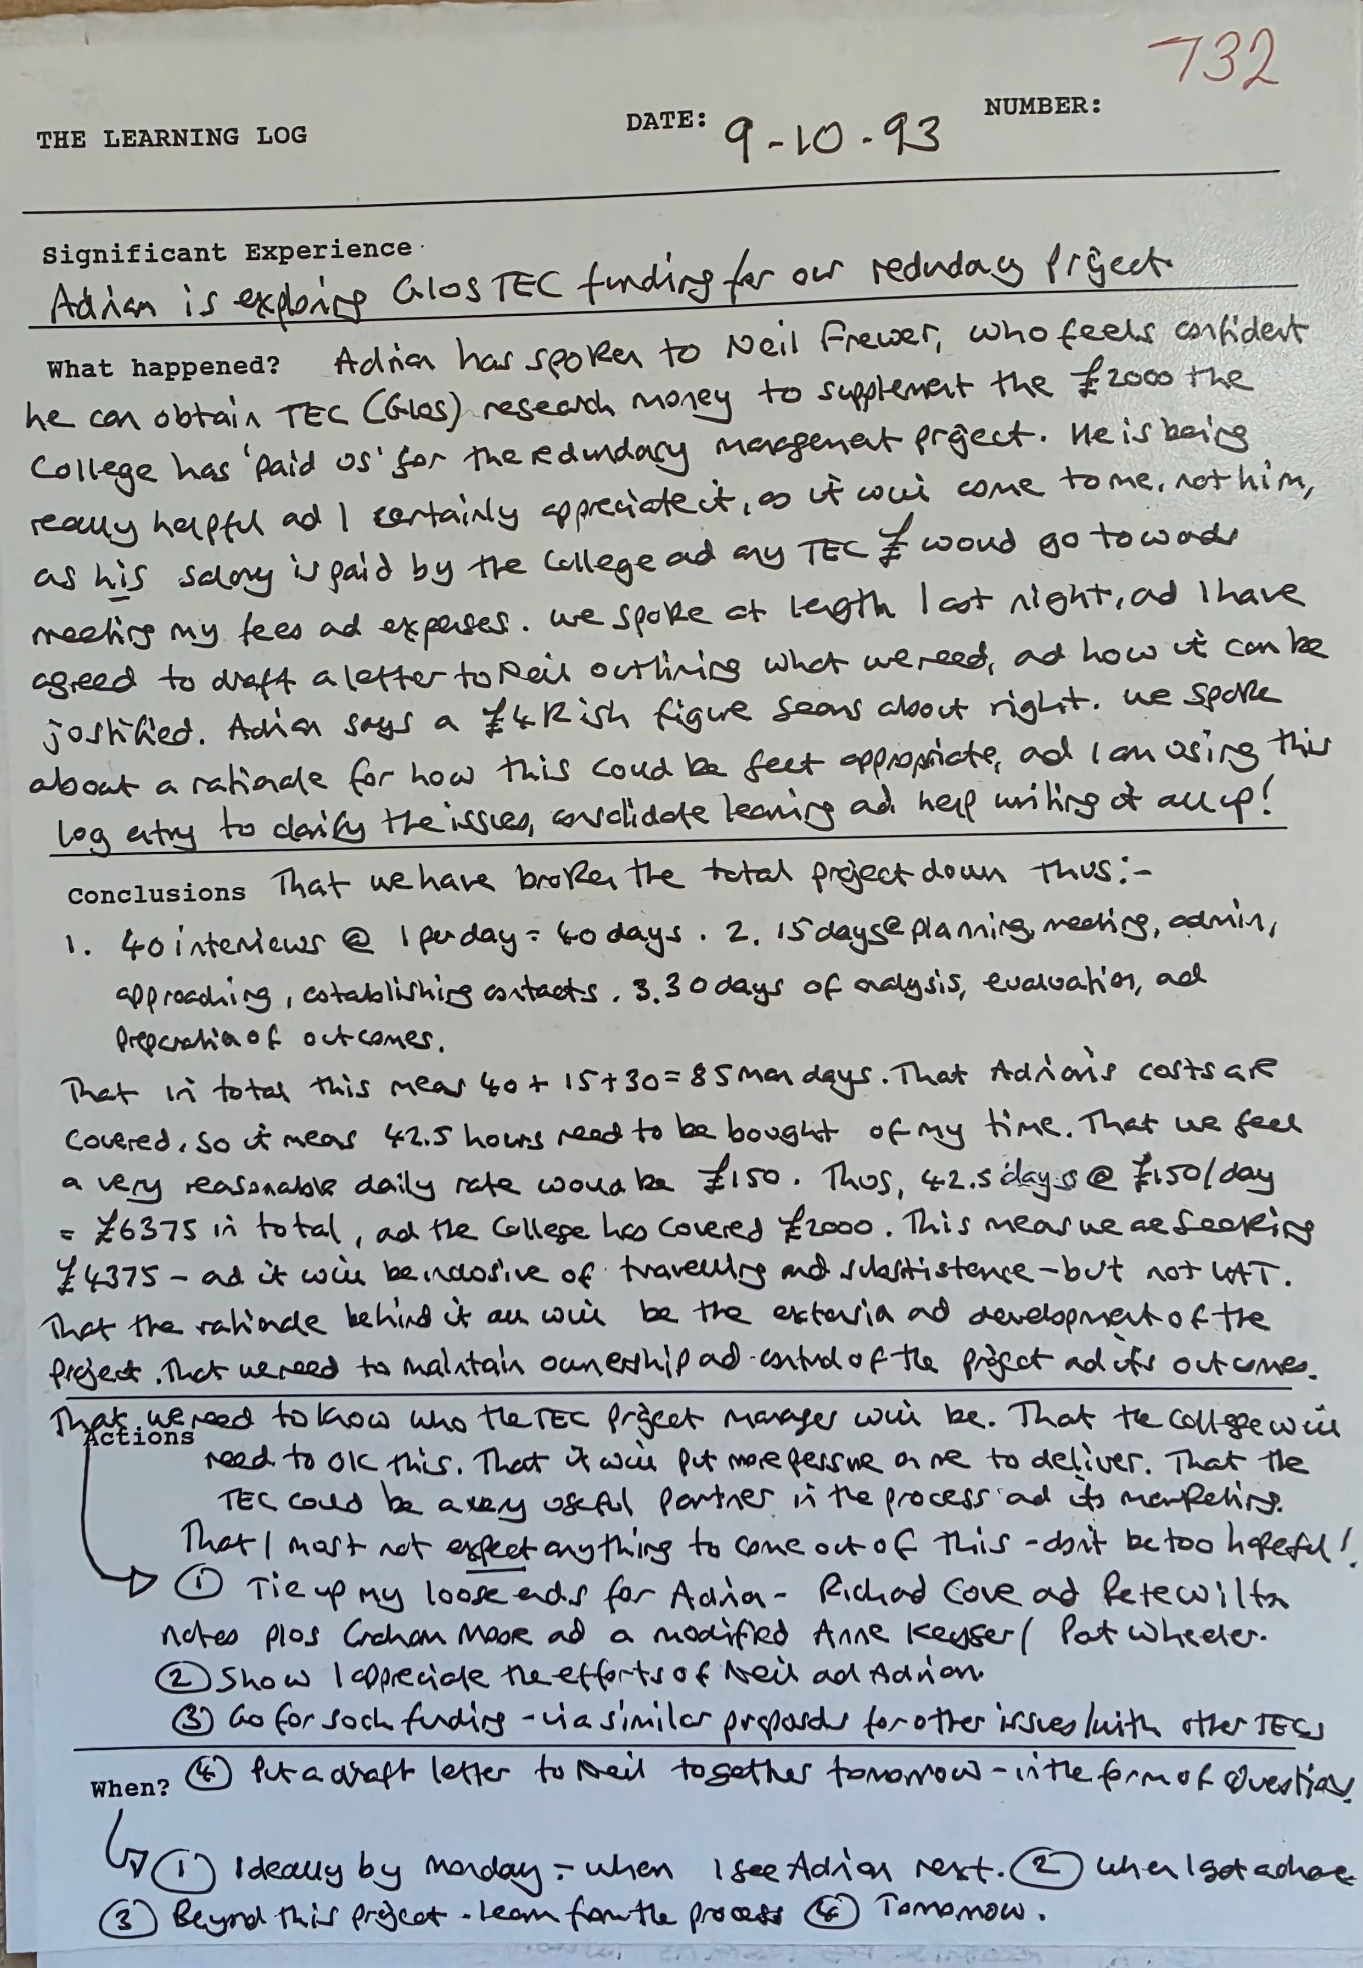 732
THE LEARNING LOG DATE: 9-10-93 NUMBER:
Significant Experience
Adrian is exploring Glos TEC funding for our redundacy project
What happened? Adrian has spoken to Neil Frewer, who feels confident
he can obtain TEC (Glos) research money to supplement the £2000 the
College has 'paid us' for the redundacy management project. He is being
really helpful ad I certainly appreciate it, as it will come to me, not him,
as his salary is paid by the College ad any TEC £ would go towards
meeting my fees ad expenses. We spoke at length last night, ad I have
agreed to draft a letter to Neil outlining what we need, ad how it can be
justified. Adrian says a £4K ish figure seems about right. We spoke
about a rationale for how this could be feet appropriate, ad I am using this
log entry to clarify the issues, consolidate learning ad help writing it all up!
Conclusions That we have broken the total project down thus:-
1. 40 interviews @ 1 per day = 40 days. 2. 15 days @ planning, meeting, admin,
approaching, establishing contacts. 3. 30 days of analysis, evaluation, ad
preparation of outcomes.
That in total this means 40 + 15 + 30 = 85 man days. That Adrian's costs are
covered, so it means 42.5 hours need to be bought of my time. That we feel
a very reasonable daily rate would be £150. Thus, 42.5 days @ £150/day
= £6375 in total, ad the College has covered £2000. This means we are seeking
£4375 - ad it will be inclusive of travelling and substistence - but not VAT.
That the rationale behind it all will be the extension ad development of the
project. That we need to maintain ownership ad control of the project ad its outcomes.
That we need to know who the TEC project manager will be. That the College will
Actions
need to OK this. That it will put more pressure on me to deliver. That the
TEC could be a very useful partner in the process ad its marketing.
That I must not expect anything to come out of this - don't be too hopeful!
① Tie up my loose ends for Adrian - Richard Cove ad Pete Wilton
notes plus Graham Moore ad a modified Anne Keyser / Pat Wheeler.
② Show I appreciate the efforts of Neil ad Adrian
③ Go for such funding - via similar proposals for other issues/with other TECs
④ Put a draft letter to Neil together tomorrow - in the form of questions.
When?
① Ideally by Monday - when I see Adrian next. ② When I get a chance
③ Beyond this project - learn from the process ④ Tomorrow.